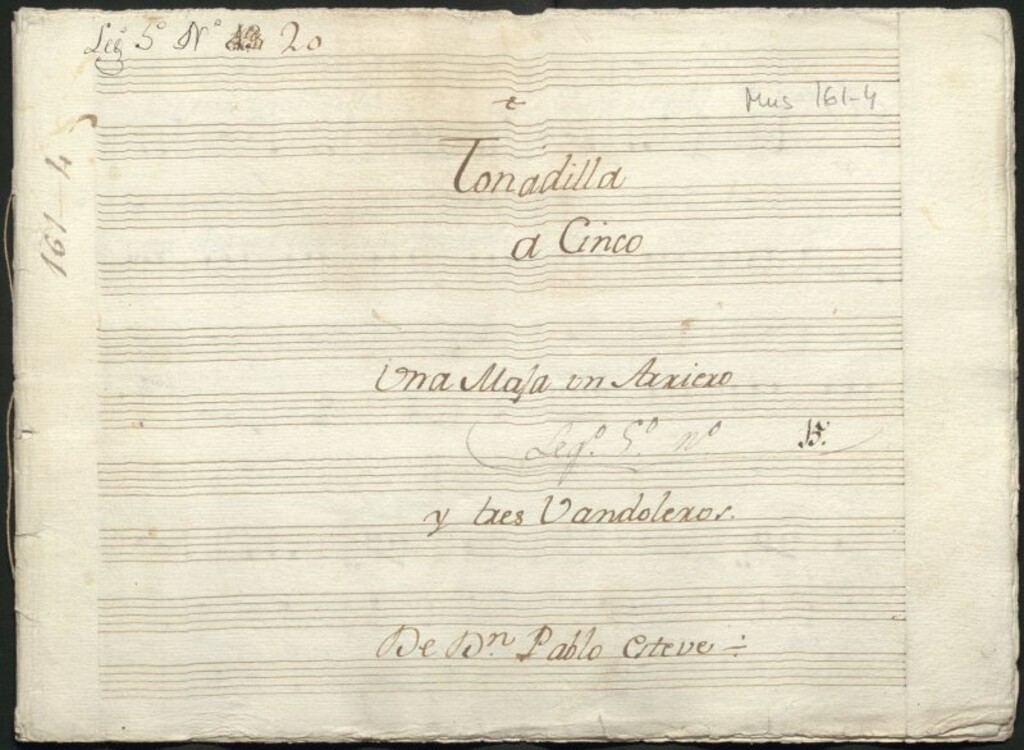 Leg.º 5º Nº 20
Mus 161-4
161-4
Tonadilla
a Cinco
Una Maja un Arriero
Leg.º 5.º n.º 15.
y tres Vandoleros.
De D.n Pablo Esteve